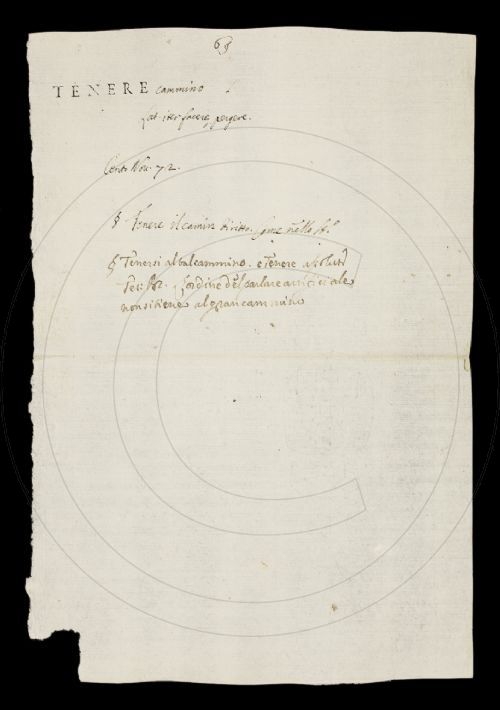 TENERE cammino
lat. iter facere, pergere.
Cento Nov. 72.
§ Tenere il camin diritto. come nello st.º
§ Tenersi al cammino. e Tenere
l'ordine del parlare artificiale
non si tiene al gran cammino